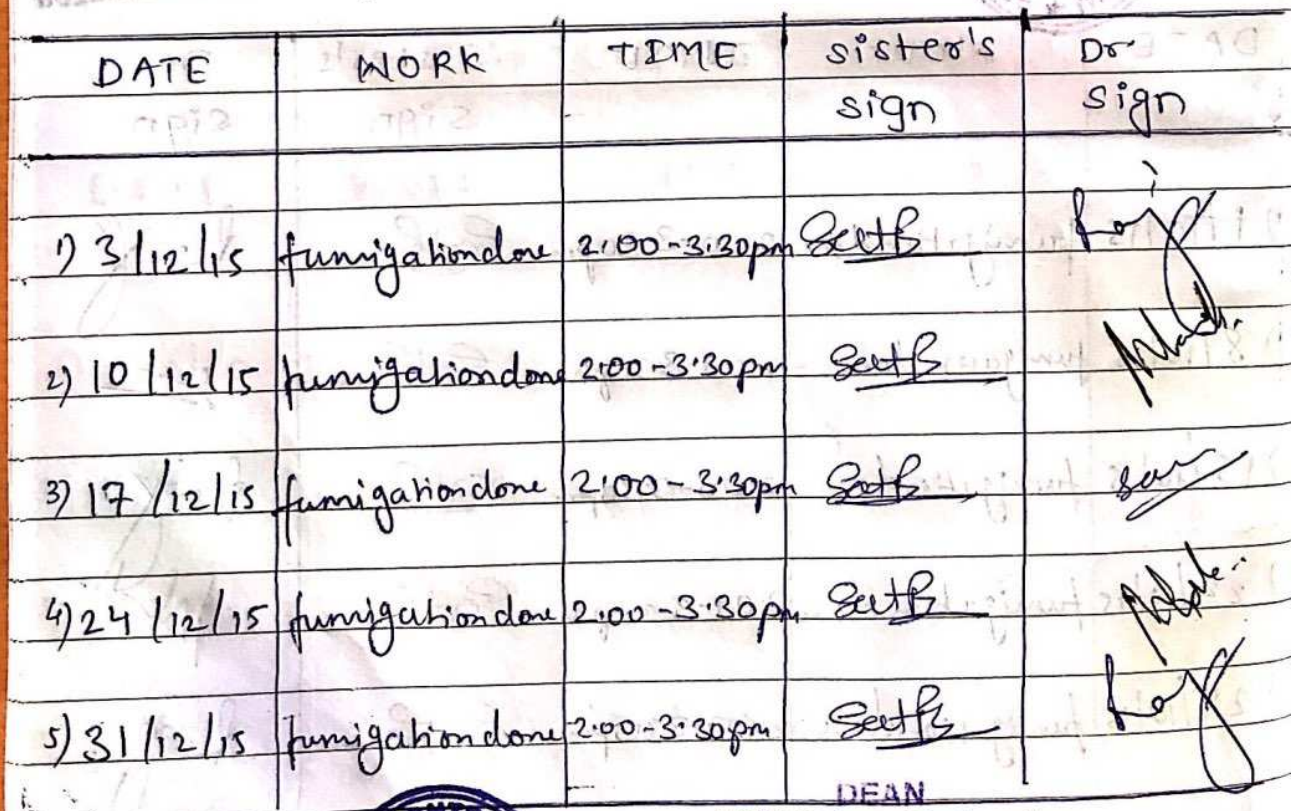 DATE WORK TIME sister's Dr.
sign sign
1) 3/12/15 fumigation done 2:00-3.30pm
2) 10/12/15 fumigation done 2:00-3.30pm
3) 17/12/15 fumigation done 2:00-3.30pm
4) 24/12/15 fumigation done 2:00-3.30pm
5) 31/12/15 fumigation done 2:00-3.30pm
DEAN